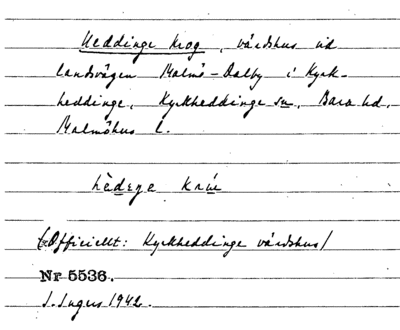 Heddinge krog, värdshus vid
landsvägen Malmö-Dalby i Kyrk-
heddinge, Kyrkheddinge sn, Bara hd,
Malmöhus l.
hèdeŋe
(Officiellt: Kyrkheddinge värdshus/
Nr 5536.
S. Ingers 1942.